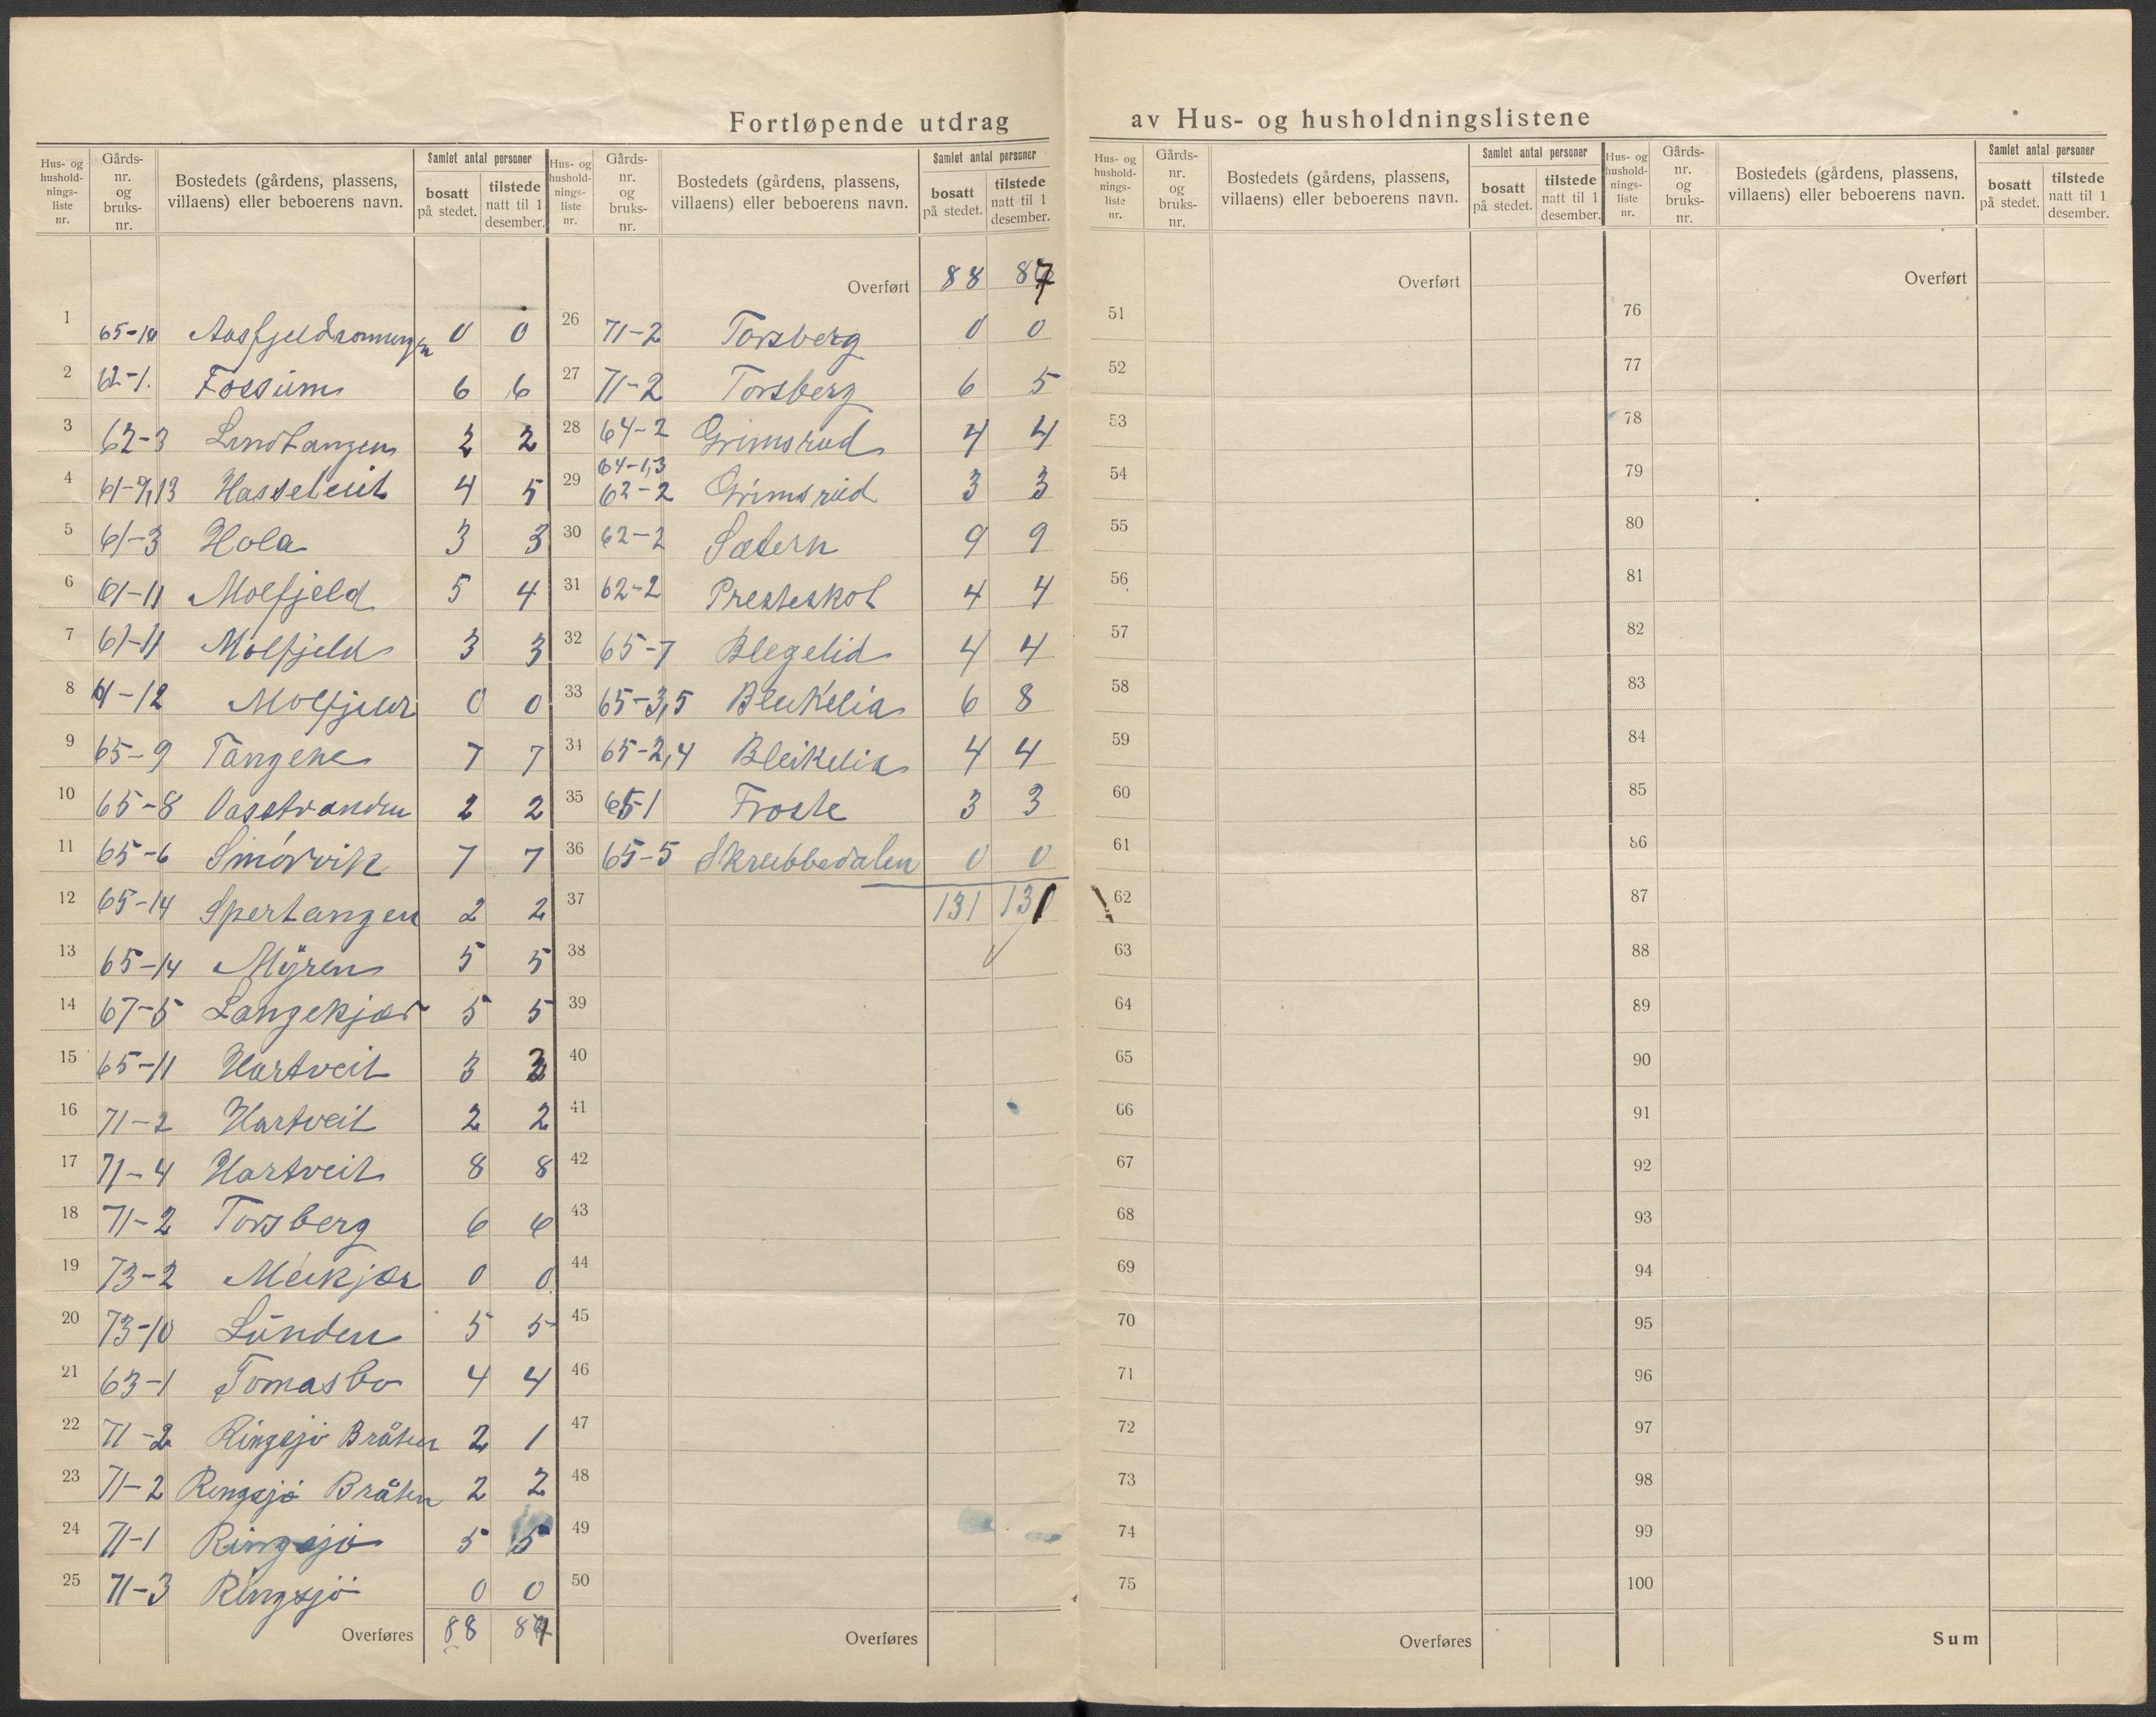 Fortløpende utdrag av Hus- og husholdningslistene
Hus- og husholdnings-liste nr. Gårds-nr. og bruks-nr. Bostedets (gårdens, plassens, villaens) eller beboerens navn. Samlet antal personer bosatt på stedet. tilstede natt til 1 desember.
1 65-10 0 0
2 62-1. Fossum 6 6
3 62-3 Lindtangen 2 2
4 61-9,13 Hasseleit 4 5
5 61-3 Hola 3 3
6 61-11 Molfjeld 5 4
7 61-11 Molfjeld 3 3
8 61-12 Molfjeld 0 0
9 65-9 Tangene 7 7
10 65-8 Vasstranden 2 2
11 65-6 Smörvik 7 7
12 65-14 Spertangen 2 2
13 65-14 Myren 5 5
14 67-5 Langekjær 5 5
15 65-11 Hartveit 3 3
16 71-2 Hartveit 2 2
17 71-4 Hartveit 8 8
18 71-2 Torsberg 6 6
19 73-2 Meikjær 0 0
20 73-10 Lunden 5 5
21 63-1 Tomasbo 4 4
22 71-2 Ringsjö Bråten 2 1
23 71-2 Ringsjö Bråten 2 2
24 71-1 Ringsjö 5 5
25 71-3 Ringsjö 0 0
Overføres 88 87
Hus- og husholdnings-liste nr. Gårds-nr. og bruks-nr. Bostedets (gårdens, plassens, villaens) eller beboerens navn. Samlet antal personer bosatt på stedet. tilstede natt til 1 desember.
Overført 88 87
26 71-2 Torsberg 0 0
27 71-2 Torsberg 6 5
28 64-2 Grimsrud 4 4
64-1,3
29 62-2 Grimsrud 3 3
30 62-2 Sætern 9 9
31 62-2 Presteskot 4 4
32 65-7 Blegelid 4 4
33 65-3,5 Bleikelia 6 8
34 65-2,4 Bleikelia 4 4
35 65-1 Froste 3 3
36 65-5 Skrubbedalen 0 0
37 131 131
38
39
40
41
42
43
44
45
46
47
48
49
50
Overføres
Hus- og husholdnings-liste nr. Gårds-nr. og bruks-nr. Bostedets (gårdens, plassens, villaens) eller beboerens navn. Samlet antal personer bosatt på stedet. tilstede natt til 1 desember.
Overført
51
52
53
54
55
56
57
58
59
60
61
62
63
64
65
66
67
68
69
70
71
72
73
74
75
Overføres
Hus- og husholdnings-liste nr. Gårds-nr. og bruks-nr. Bostedets (gårdens, plassens, villaens) eller beboerens navn. Samlet antal personer bosatt på stedet. tilstede natt til 1 desember.
Overført
76
77
78
79
80
81
82
83
84
85
86
87
88
89
90
91
92
93
94
95
96
97
98
99
100
Sum